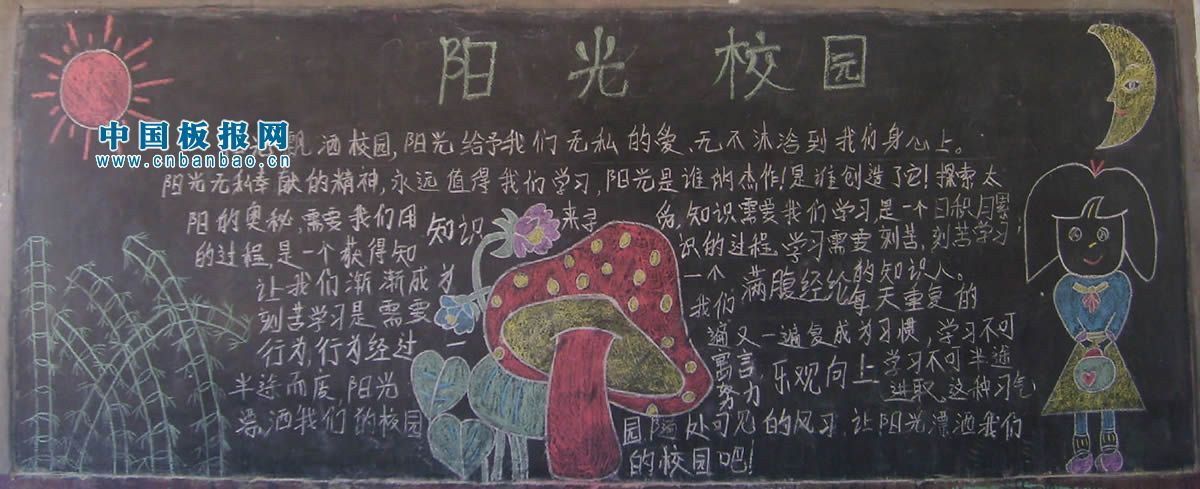 阳光校园
中国板报网
www.cnbanbao.cn
洒校园,阳光给予我们无私的爱、无不沐浴到我们身心上。
阳光无私奉献的精神,永远值得我们学习,阳光是谁的杰作!是谁创造了它!探索太
阳的奥秘,需要我们用知识来寻觅,知识需要我们学习,是一个日积月累
的过程,是一个获得知识的过程,学习需要刻苦,刻苦学习,
让我们渐渐成为一个满腹经纶的知识人。
刻苦学习是需要我们每天重复的
行为,行为经过一遍又一遍复成为习惯,学习不可
半途而废,阳光寓言努力乐观向上学习不可半途
进取,这种习气
漂洒我们的校园园随处可见的风习,让阳光漂洒我们
的校园吧!